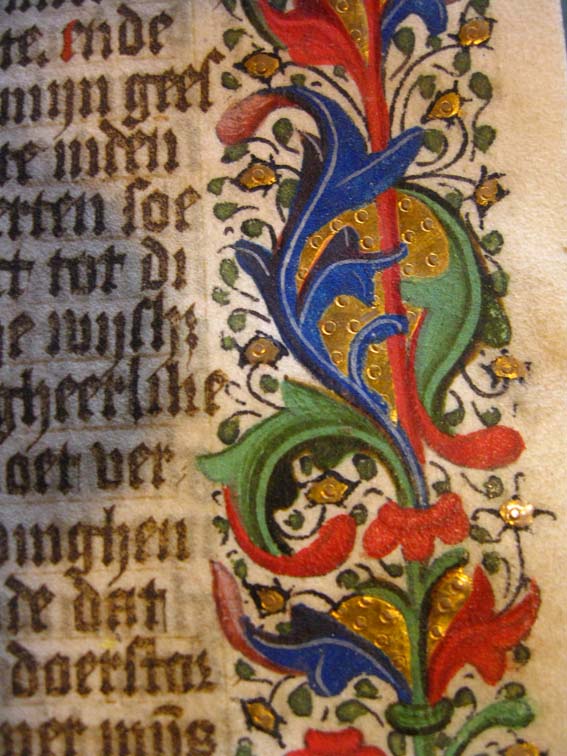 te. ende
mijn gees
te inden
erten soe
rt tot di
ghe wijsly
gheerlike
oet ver
dinghen
de dat
daerstaz
met mijs